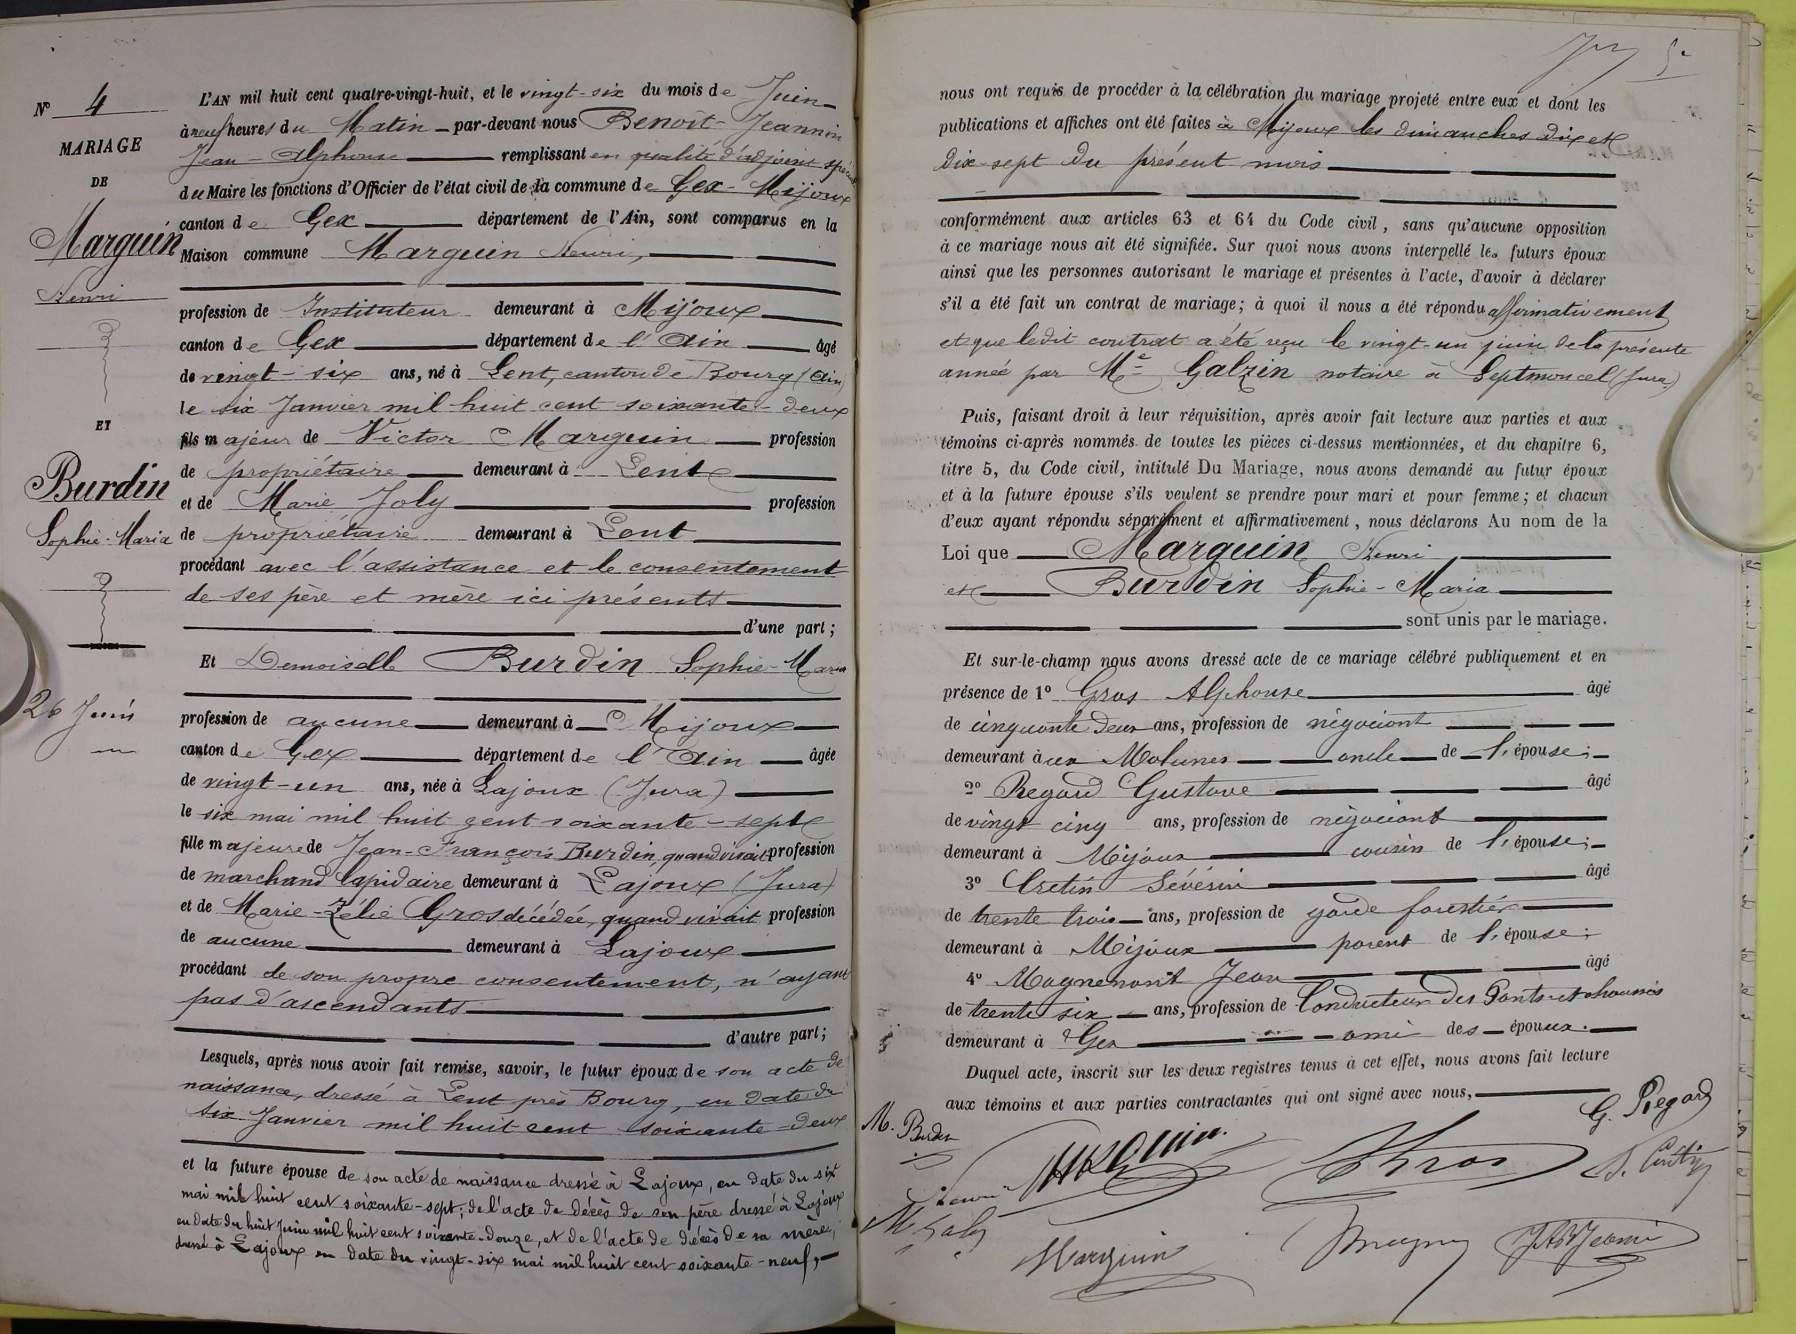 N° 4
MARIAGE
DE
Marguin
Henri
ET
Burdin
Sophie-Maria
26 Juin
L'AN mil huit cent quatre-vingt-huit, et le vingt-six du mois de Juin
à neuf heures du Matin par-devant nous Benoit-Jeannin
Jean-Alphonse remplissant en qualité d'adjoint spécial
du Maire les fonctions d'Officier de l'état civil de la commune de Gex-Mijoux
canton de Gex département de l'Ain, sont comparus en la
Maison commune Marguin Henri,
profession de Instituteur demeurant à Mijoux
canton de Gex département de l'Ain âgé
de vingt-six ans, né à Lent, canton de Bourg (Ain)
le six Janvier mil huit cent soixante-deux
fils majeur de Victor Marguin profession
de propriétaire demeurant à Lent
et de Marie Joly profession
de propriétaire demeurant à Lent
procédant avec l'assistance et le consentement
de ses père et mère ici présents
d'une part;
Et Demoiselle Burdin Sophie-Maria
profession de aucune demeurant à Mijoux
canton de Gex département de l'Ain âgée
de vingt-un ans, née à Lajoux (Jura)
le six mai mil huit cent soixante-sept
fille majeure de Jean-François Burdin, quand vivait profession
de marchand lapidaire demeurant à Lajoux (Jura)
et de Marie-Zélie Gros décédée, quand vivait profession
de aucune demeurant à Lajoux
procédant de son propre consentement, n'ayant
pas d'ascendants
d'autre part;
Lesquels, après nous avoir fait remise, savoir, le futur époux de son acte de
naissance, dressé à Lent près Bourg, en date du
six Janvier mil huit cent soixante-deux
et la future épouse de son acte de naissance dressé à Lajoux, en date du six
mai mil huit cent soixante-sept; de l'acte de décès de son père dressé à Lajoux
en date du huit Juin mil huit cent soixante-douze, et de l'acte de décès de sa mère,
dressé à Lajoux en date du vingt-six mai mil huit cent soixante-neuf,
nous ont requis de procéder à la célébration du mariage projeté entre eux et dont les
publications et affiches ont été faites à Mijoux les dimanches dix et
dix-sept du présent mois
conformément aux articles 63 et 64 du Code civil, sans qu'aucune opposition
à ce mariage nous ait été signifiée. Sur quoi nous avons interpellé les futurs époux
ainsi que les personnes autorisant le mariage et présentes à l'acte, d'avoir à déclarer
s'il a été fait un contrat de mariage; à quoi il nous a été répondu affirmativement
et que ledit contrat a été reçu le vingt-un juin de la présente
année par Me Galzin notaire à Septmoncel (Jura)
Puis, faisant droit à leur réquisition, après avoir fait lecture aux parties et aux
témoins ci-après nommés de toutes les pièces ci-dessus mentionnées, et du chapitre 6,
titre 5, du Code civil, intitulé Du Mariage, nous avons demandé au futur époux
et à la future épouse s'ils veulent se prendre pour mari et pour femme; et chacun
d'eux ayant répondu séparément et affirmativement, nous déclarons Au nom de la
Loi que Marguin Henri
et Burdin Sophie-Maria
sont unis par le mariage.
Et sur-le-champ nous avons dressé acte de ce mariage célébré publiquement et en
présence de 1° Gros Alphonse âgé
de cinquante deux ans, profession de négociant
demeurant à aux Molunes oncle de l'épouse;
2° Regard Gustave âgé
de vingt cinq ans, profession de négociant
demeurant à Mijoux cousin de l'épouse;
3° Cretin Sévérin âgé
de trente trois ans, profession de garde forestier
demeurant à Mijoux parent de l'épouse;
4° Magnenant Jean âgé
de trente six ans, profession de Conducteur des Ponts-et-chaussées
demeurant à Gex ami des époux.
Duquel acte, inscrit sur les deux registres tenus à cet effet, nous avons fait lecture
aux témoins et aux parties contractantes qui ont signé avec nous,
M. Burdin
Henri Marguin
G. Regard
S. Cretin
M Joly
Marguin